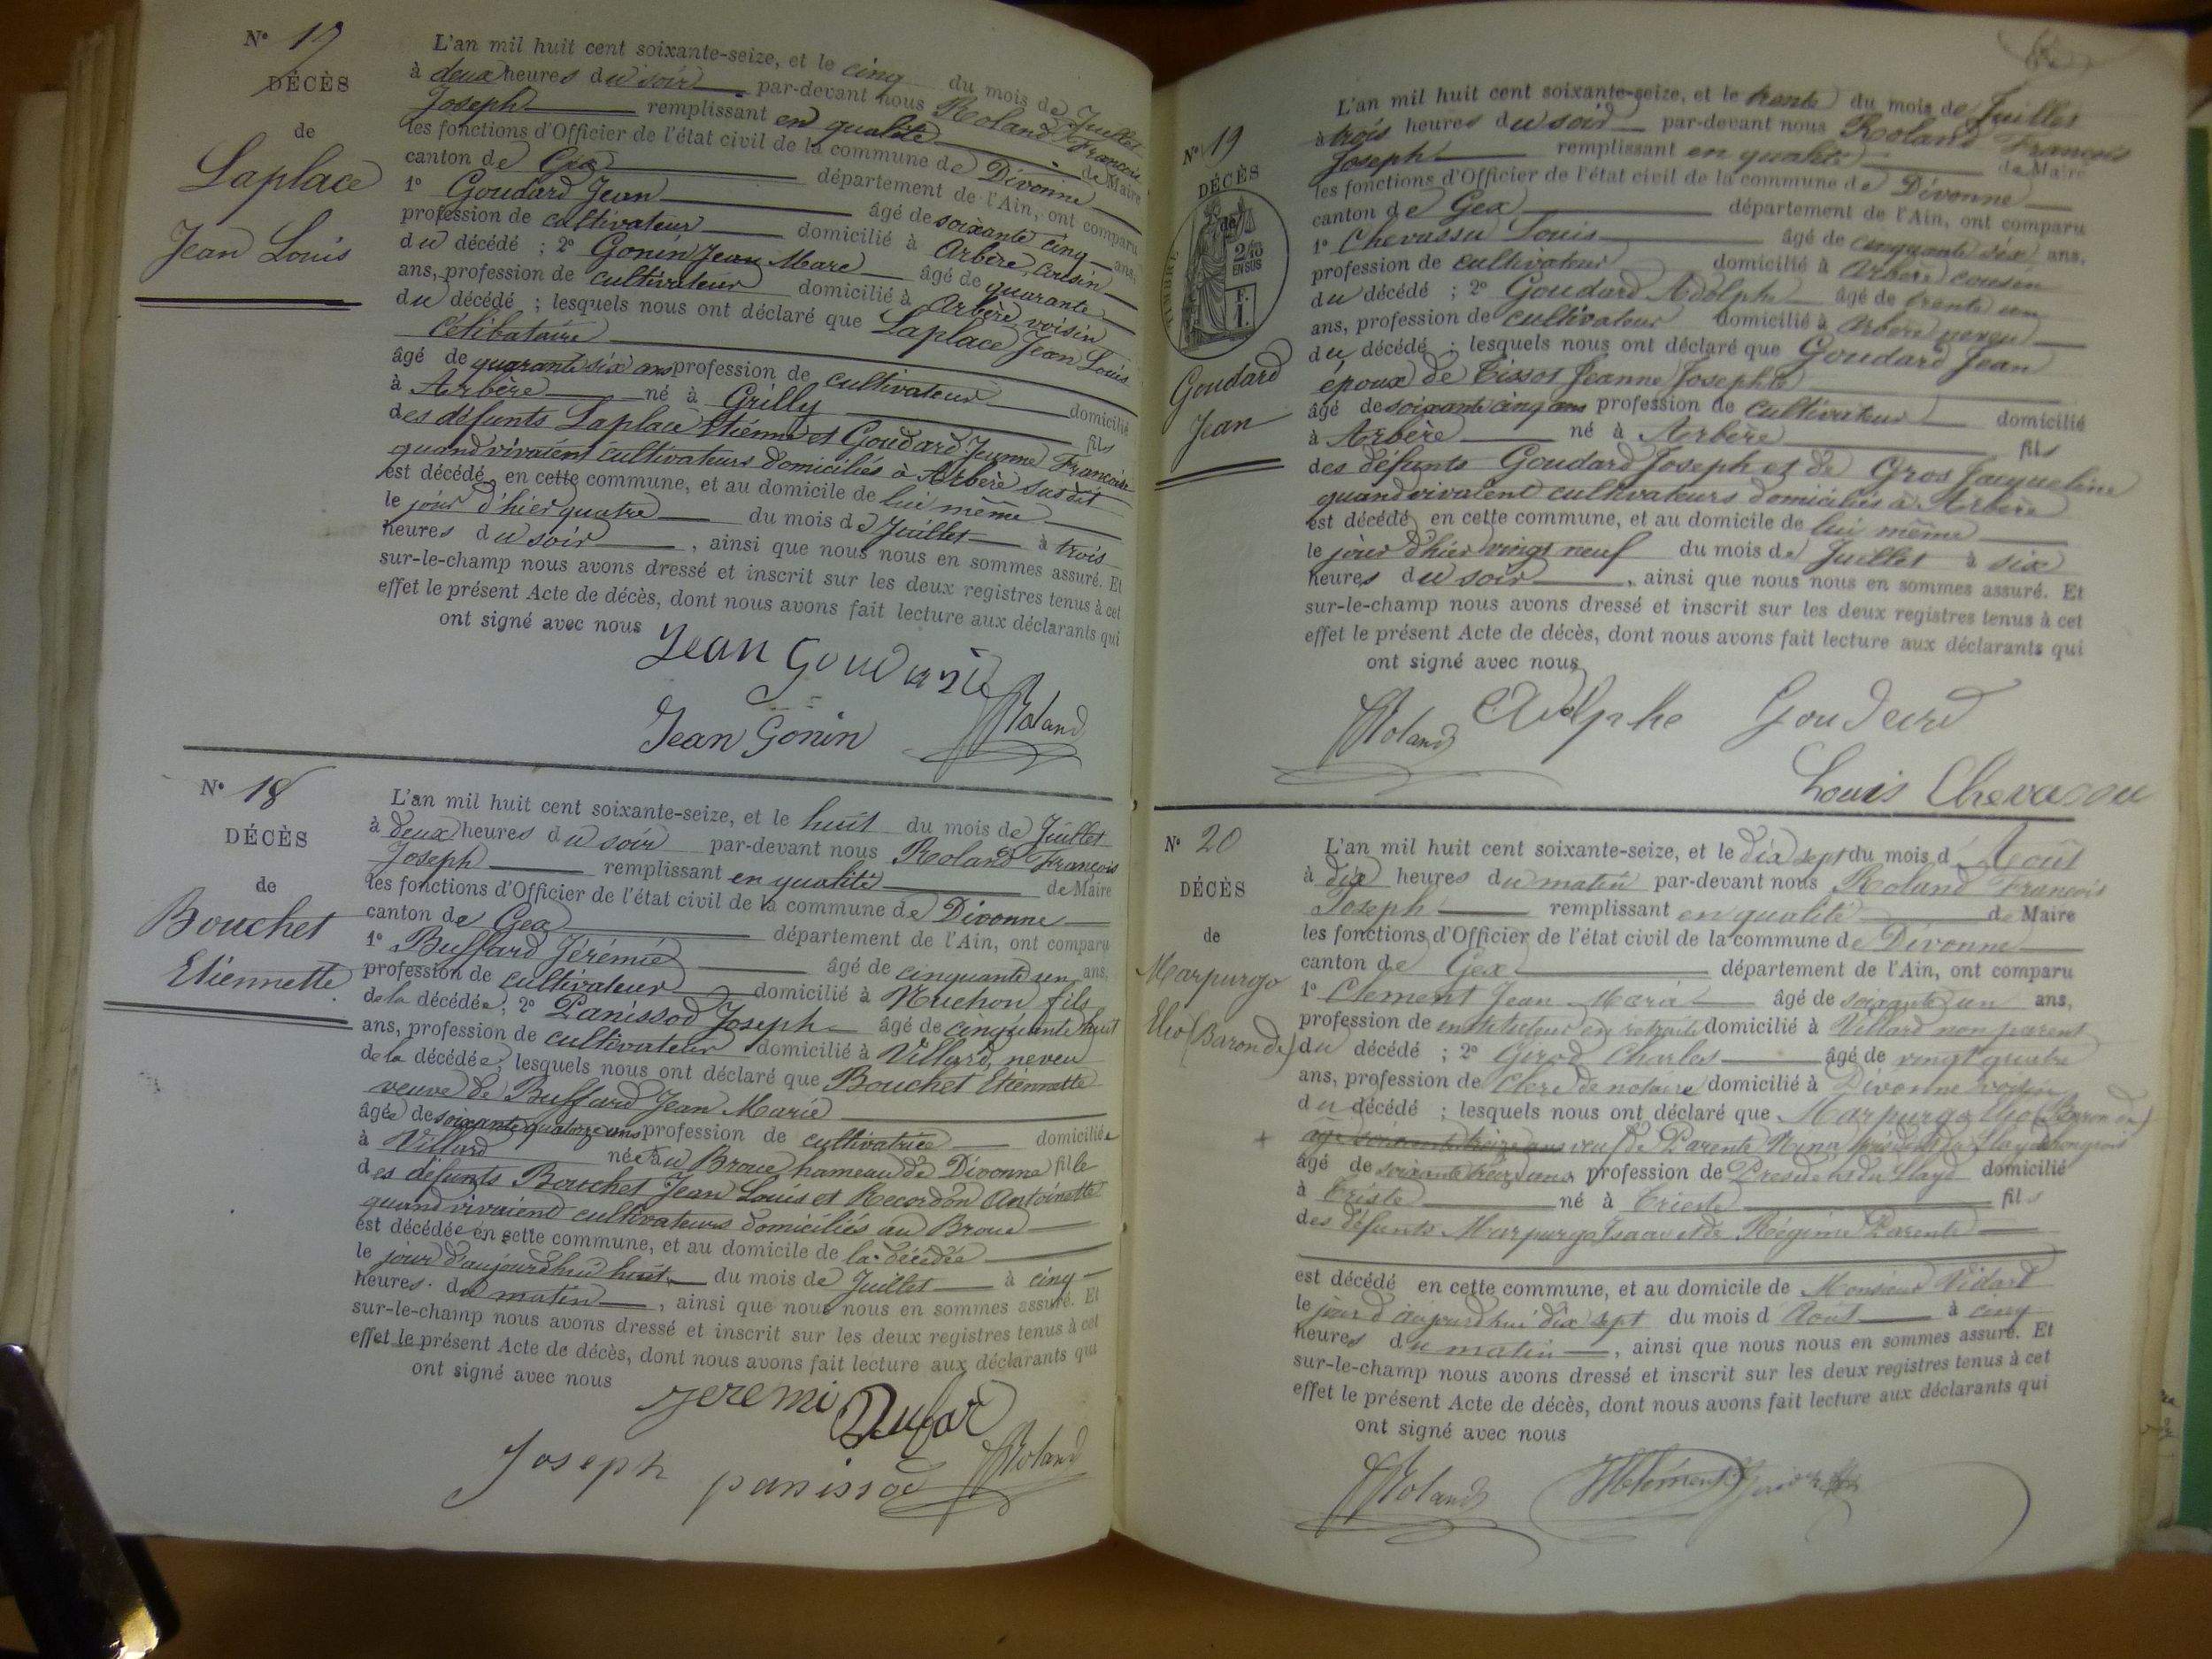 N° 17
DÉCÈS
de
Laplace
Jean Louis
L'an mil huit cent soixante-seize, et le cinq du mois de Juillet
à deux heures du soir par-devant nous Roland François
Joseph remplissant en qualité de Maire
les fonctions d'Officier de l'état civil de la commune de Divonne
canton de Gex département de l'Ain, ont comparu
1° Goudard Jean âgé de soixante cinq ans,
profession de cultivateur domicilié à Arbère, cousin
du décédé ; 2° Gonin Jean Marc âgé de quarante
ans, profession de cultivateur domicilié à Arbère voisin
du décédé ; lesquels nous ont déclaré que Laplace Jean Louis
Célibataire
âgé de quarante six ans profession de cultivateur domicilié
à Arbère né à Grilly fils
des défunts Laplace Etienne et Goudard Jeanne Françoise
quand vivaient cultivateurs domiciliés à Arbère susdit
est décédé en cette commune, et au domicile de lui même
le jour d'hier quatre du mois de Juillet à trois
heures du soir, ainsi que nous nous en sommes assuré. Et
sur-le-champ nous avons dressé et inscrit sur les deux registres tenus à cet
effet le présent Acte de décès, dont nous avons fait lecture aux déclarants qui
ont signé avec nous
Jean Goudard
Jean Gonin Roland
N° 18
DÉCÈS
de
Bouchet
Etiennette
L'an mil huit cent soixante-seize, et le huit du mois de Juillet
à deux heures du soir par-devant nous Roland François
Joseph remplissant en qualité de Maire
les fonctions d'Officier de l'état civil de la commune de Divonne
canton de Gex département de l'Ain, ont comparu
1° Buffard Jérémie âgé de cinquante un ans,
profession de cultivateur domicilié à fils
de la décédée, 2° Panissod Joseph âgé de cinquante huit
ans, profession de cultivateur domicilié à Villard, neveu
de la décédée, lesquels nous ont déclaré que Bouchet Etiennette
veuve de Buffard Jean Marie
âgée de soixante quatorze ans profession de cultivatrice domiciliée
à Villard née au Broue hameau de Divonne fille
des défunts Bouchet Jean Louis et Recordon Antoinette
quand vivaient cultivateurs domiciliés au Broue
est décédée en cette commune, et au domicile de la décédée
le jour d'aujourd'hui huit du mois de Juillet à cinq
heures du matin, ainsi que nous nous en sommes assuré. Et
sur-le-champ nous avons dressé et inscrit sur les deux registres tenus à cet
effet le présent Acte de décès, dont nous avons fait lecture aux déclarants qui
ont signé avec nous
Jeremi Bufar
Joseph panissod Roland
N° 19
DÉCÈS
de
TIMBRE
2/10
EN SUS
F.
1.
Goudard
Jean
L'an mil huit cent soixante-seize, et le trente du mois de Juillet
à trois heures du soir par-devant nous Roland François
Joseph remplissant en qualité de Maire
les fonctions d'Officier de l'état civil de la commune de Divonne
canton de Gex département de l'Ain, ont comparu
1° Chevassu Louis âgé de cinquante six ans,
profession de cultivateur domicilié à Arbère cousin
du décédé ; 2° Goudard Adolphe âgé de trente un
ans, profession de cultivateur domicilié à Arbère neveu
du décédé ; lesquels nous ont déclaré que Goudard Jean
époux de Tissot Jeanne Josephte
âgé de soixante cinq ans profession de cultivateur domicilié
à Arbère né à Arbère fils
des défunts Goudard Joseph et de Gros Jacqueline
quand vivaient cultivateurs domiciliés à Arbère
est décédé en cette commune, et au domicile de lui même
le jour d'hier vingt neuf du mois de Juillet à six
heures du soir, ainsi que nous nous en sommes assuré. Et
sur-le-champ nous avons dressé et inscrit sur les deux registres tenus à cet
effet le présent Acte de décès, dont nous avons fait lecture aux déclarants qui
ont signé avec nous
Roland Adolphe Goudard
Louis Chevassu
N° 20
DÉCÈS
de
Marpurgo
Elio (Baron de)
L'an mil huit cent soixante-seize, et le dix sept du mois d'Août
à dix heures du matin par-devant nous Roland François
Joseph remplissant en qualité de Maire
les fonctions d'Officier de l'état civil de la commune de Divonne
canton de Gex département de l'Ain, ont comparu
1° Clement Jean Marie âgé de soixante un ans,
profession de instituteur en retraite domicilié à Villard non parent
du décédé ; 2° Girod Charles âgé de vingt quatre
ans, profession de Clerc de notaire domicilié à Divonne voisin
du décédé ; lesquels nous ont déclaré que Marpurgo Elio (Baron de)
âgé soixante treize ans veuf de Parente Nina
âgé de soixante treize ans profession de Président du Lloyd domicilié
à Trieste né à Trieste fils
des défunts Marpurgo Isaac et de Régine Parente
est décédé en cette commune, et au domicile de Monsieur Vidart
le jour d'aujourd'hui dix sept du mois d'Août à cinq
heures du matin, ainsi que nous nous en sommes assuré. Et
sur-le-champ nous avons dressé et inscrit sur les deux registres tenus à cet
effet le présent Acte de décès, dont nous avons fait lecture aux déclarants qui
ont signé avec nous
Roland Clément Girod